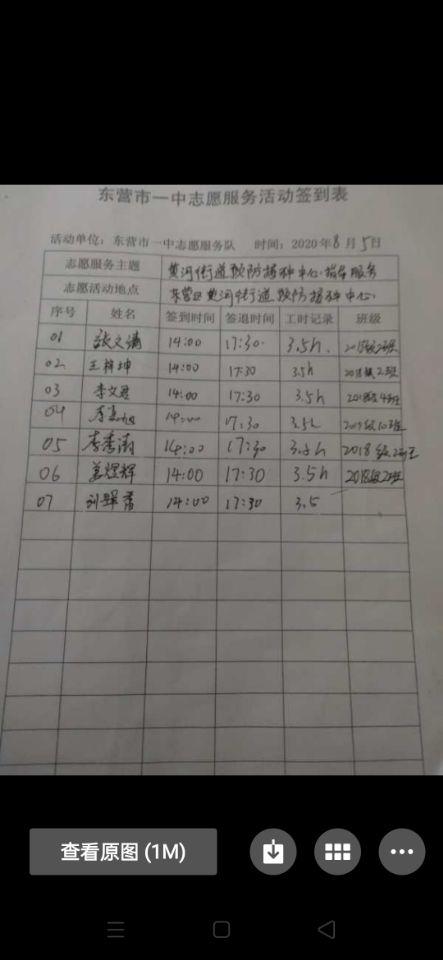 东营市一中志愿服务活动签到表
活动单位：东营市一中志愿服务队 时间：2020年8月5日
志愿服务主题 黄河街道预防接种中心 服务
志愿活动地点 东营区黄河街道预防接种中心
序号 姓名 签到时间 签退时间 工时记录 班级
01 张文清 14:00 17:30 3.5h. 2018级2班
02 王梓坤 14:00 17:30 3.5h 2018级2班
03 李文君 14:00 17:30 3.5h 2018级4班
04 14:00 17:30 3.5h
05 14:00 17:30 3.5h 2018级2班
06 姜煜辉 14:00 17:30 3.5h 2018级2班
07 14:00 17:30 3.5
查看原图 (1M)